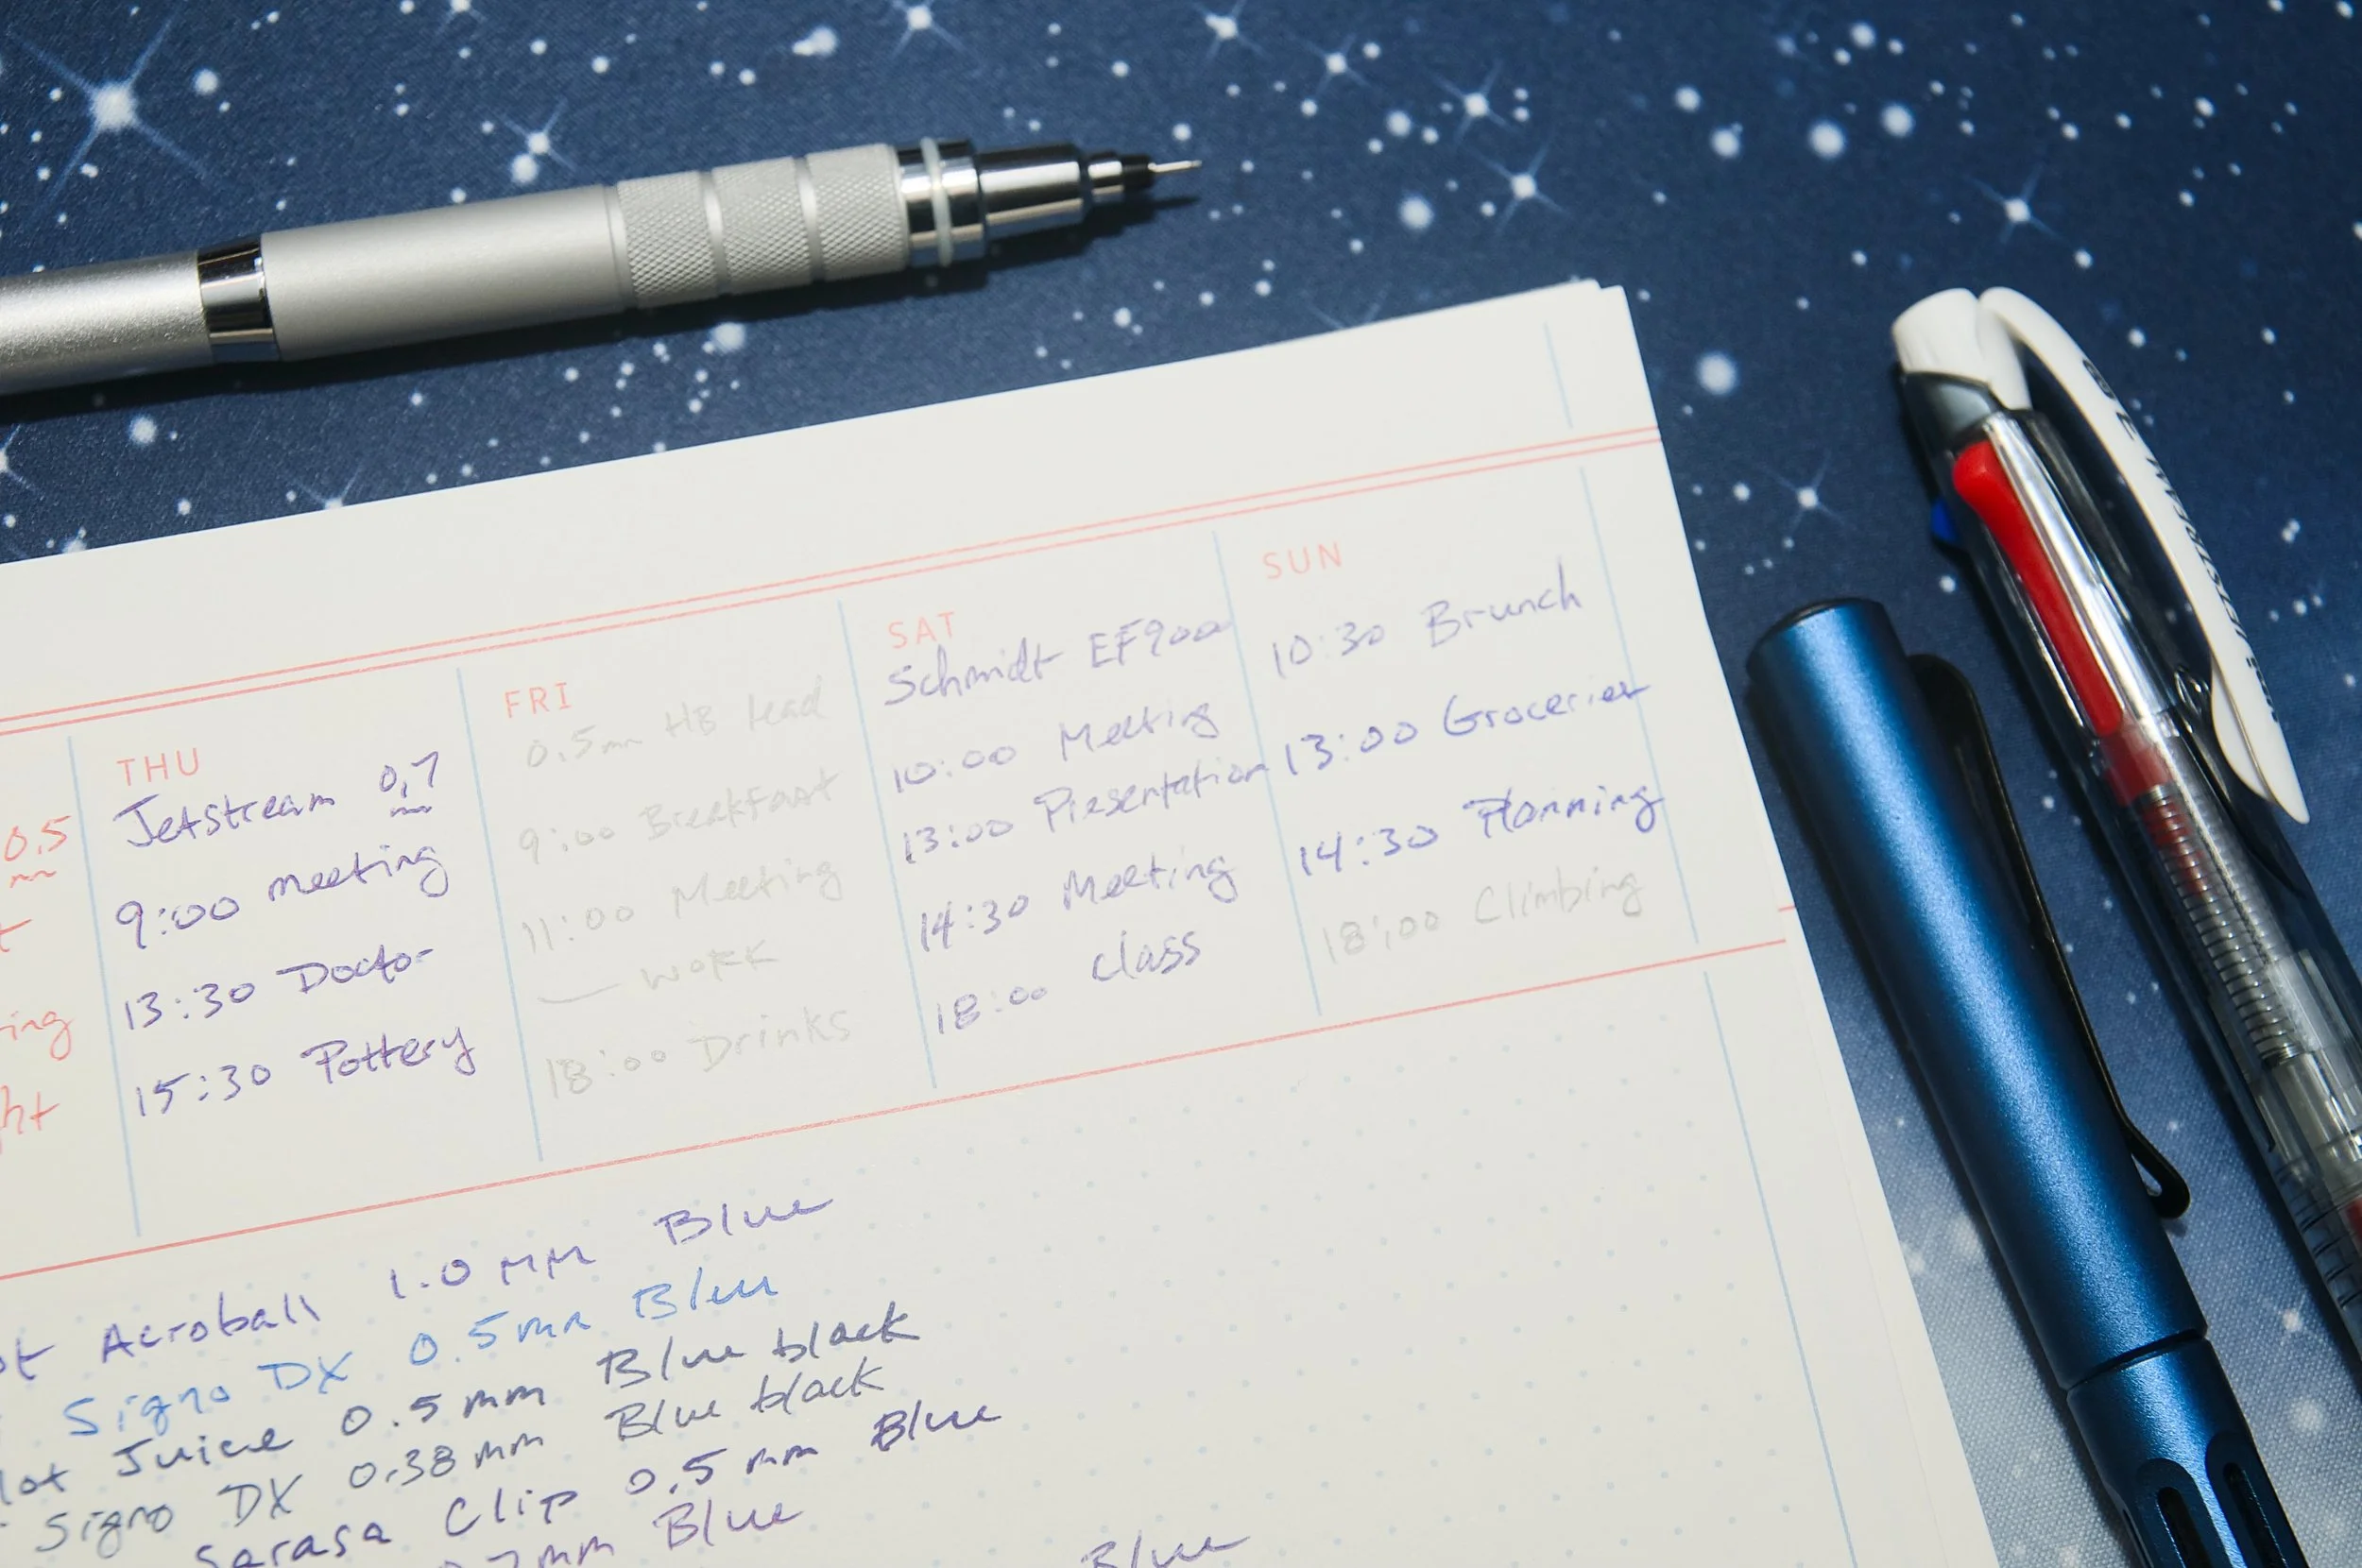 0.5
mm
t
ing
ht
THU
Jetstream 0.7
mm
9:00 meeting
13:30 Doctor
15:30 Pottery
FRI
0.5mm HB lead
9:00 Breakfast
11:00 Meeting
— work
18:00 Drinks
SAT
Schmidt EF900
10:00 Meeting
13:00 Presentation
14:30 Meeting
18:00 Class
SUN
10:30 Brunch
13:00 Groceries
14:30 Planning
18:00 Climbing
ot Acroball 1.0 mm Blue
Signo DX 0.5mm Blue
lot Juice 0.5 mm Blue black
Signo DX 0.38 mm Blue black
Sarasa Clip 0.5 mm Blue
0.7mm Blue
Blue
uni JETSTREAM